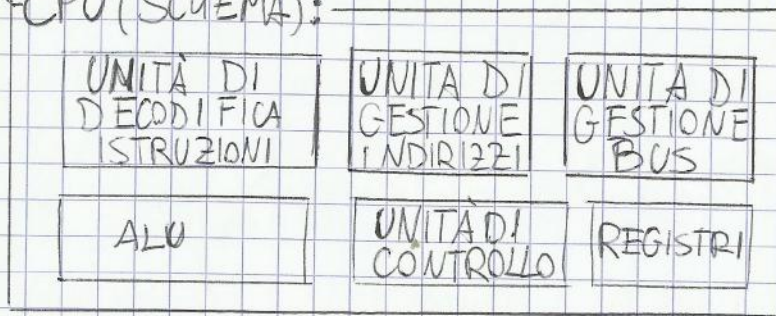 -CPU (SCHEMA):
UNITÀ DI
DECODIFICA
ISTRUZIONI
UNITA DI
GESTIONE
INDIRIZZI
UNITA DI
GESTIONE
BUS
ALU
UNITÀ DI
CONTROLLO
REGISTRI